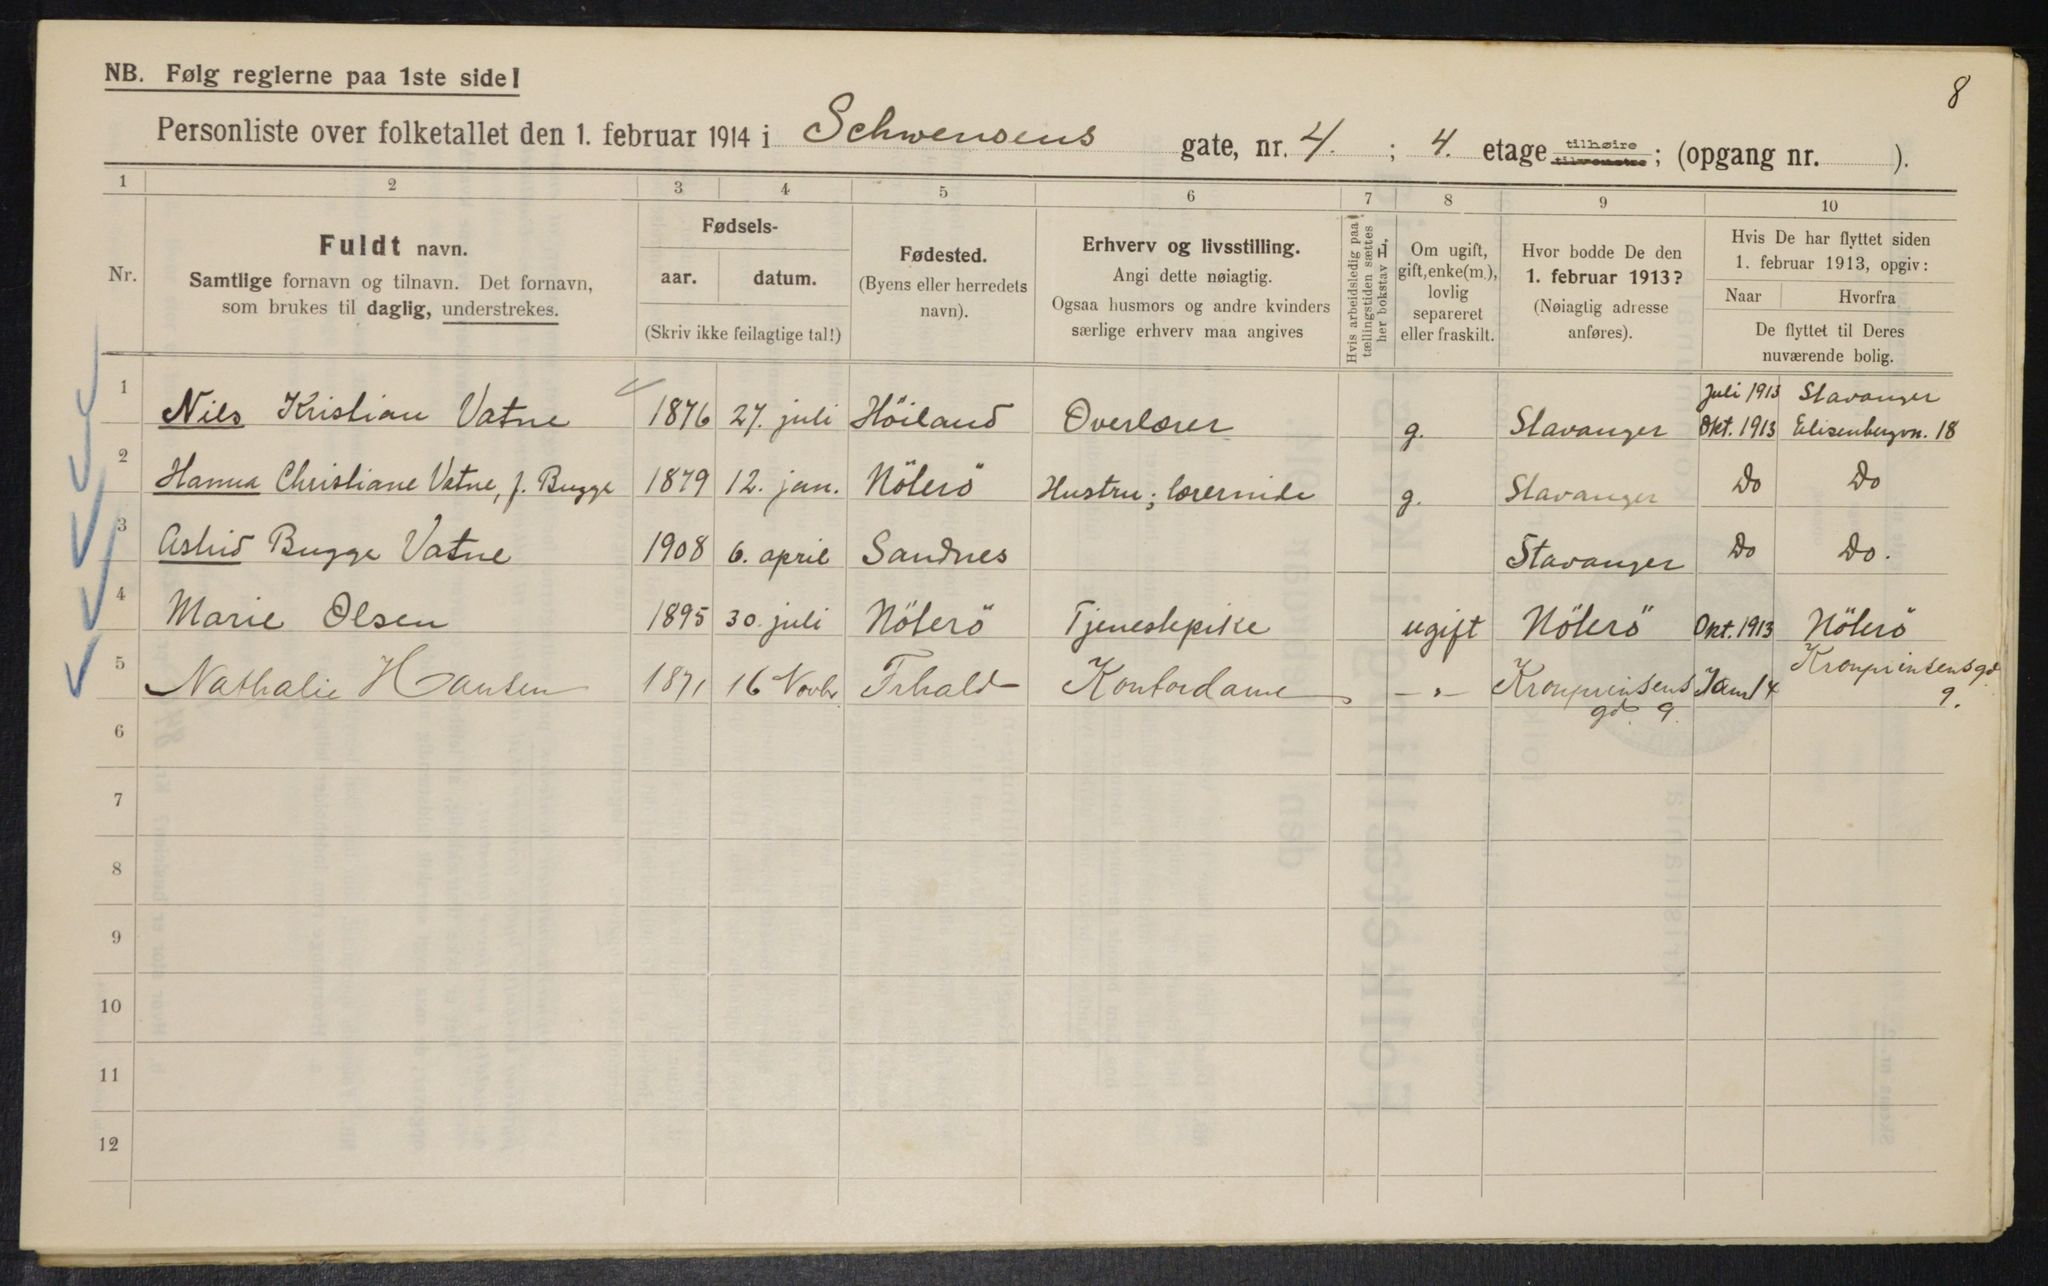 8
NB. Følg reglerne paa 1ste side!
Personliste over folketallet den 1. februar 1914 i Schwensens gate, nr. 4. ; 4. etage tilhøire tilvenstre; (opgang nr. ).
1 2 3 4 5 6 7 8 9 10
Nr.
Fuldt navn.
Samtlige fornavn og tilnavn. Det fornavn,
som brukes til daglig, understrekes.
Fødsels-
aar. datum.
(Skriv ikke feilagtige tal!)
Fødested.
(Byens eller herredets
navn).
Erhverv og livsstilling.
Angi dette nøiagtig.
Ogsaa husmors og andre kvinders
særlige erhverv maa angives
Hvis arbeidsledig paa
tællingstiden sættes
her bokstav L.
Om ugift,
gift, enke(m.),
lovlig
separeret
eller fraskilt.
Hvor bodde De den
1. februar 1913?
(Nøiagtig adresse
anføres).
Hvis De har flyttet siden
1. februar 1913, opgiv:
Naar Hvorfra
De flyttet til Deres
nuværende bolig.
Juli 1913 Stavanger
1 Nils Kristian Vatne 1876 27. juli Höiland Overlærer g. Stavanger Okt. 1913 Elisenbergvn. 18
2 Hanna Christiane Vatne, f. Bugge 1879 12. jan. Nöterö Hustru; lærerinde g. Stavanger Do Do
3 Astrid Bugge Vatne 1908 6. april Sandnes Stavanger Do Do.
4 Marie Olsen 1895 30. juli Nöterö Tjenestepike ugift Nöterö Okt. 1913 Nöterö
5 Nathalie Hansen 1871 16 Novbr Frhald Kontordame – „ – Kronprinsens Jan 14 Kronprinsensgd
gd. 9. 9.
6
7
8
9
10
11
12